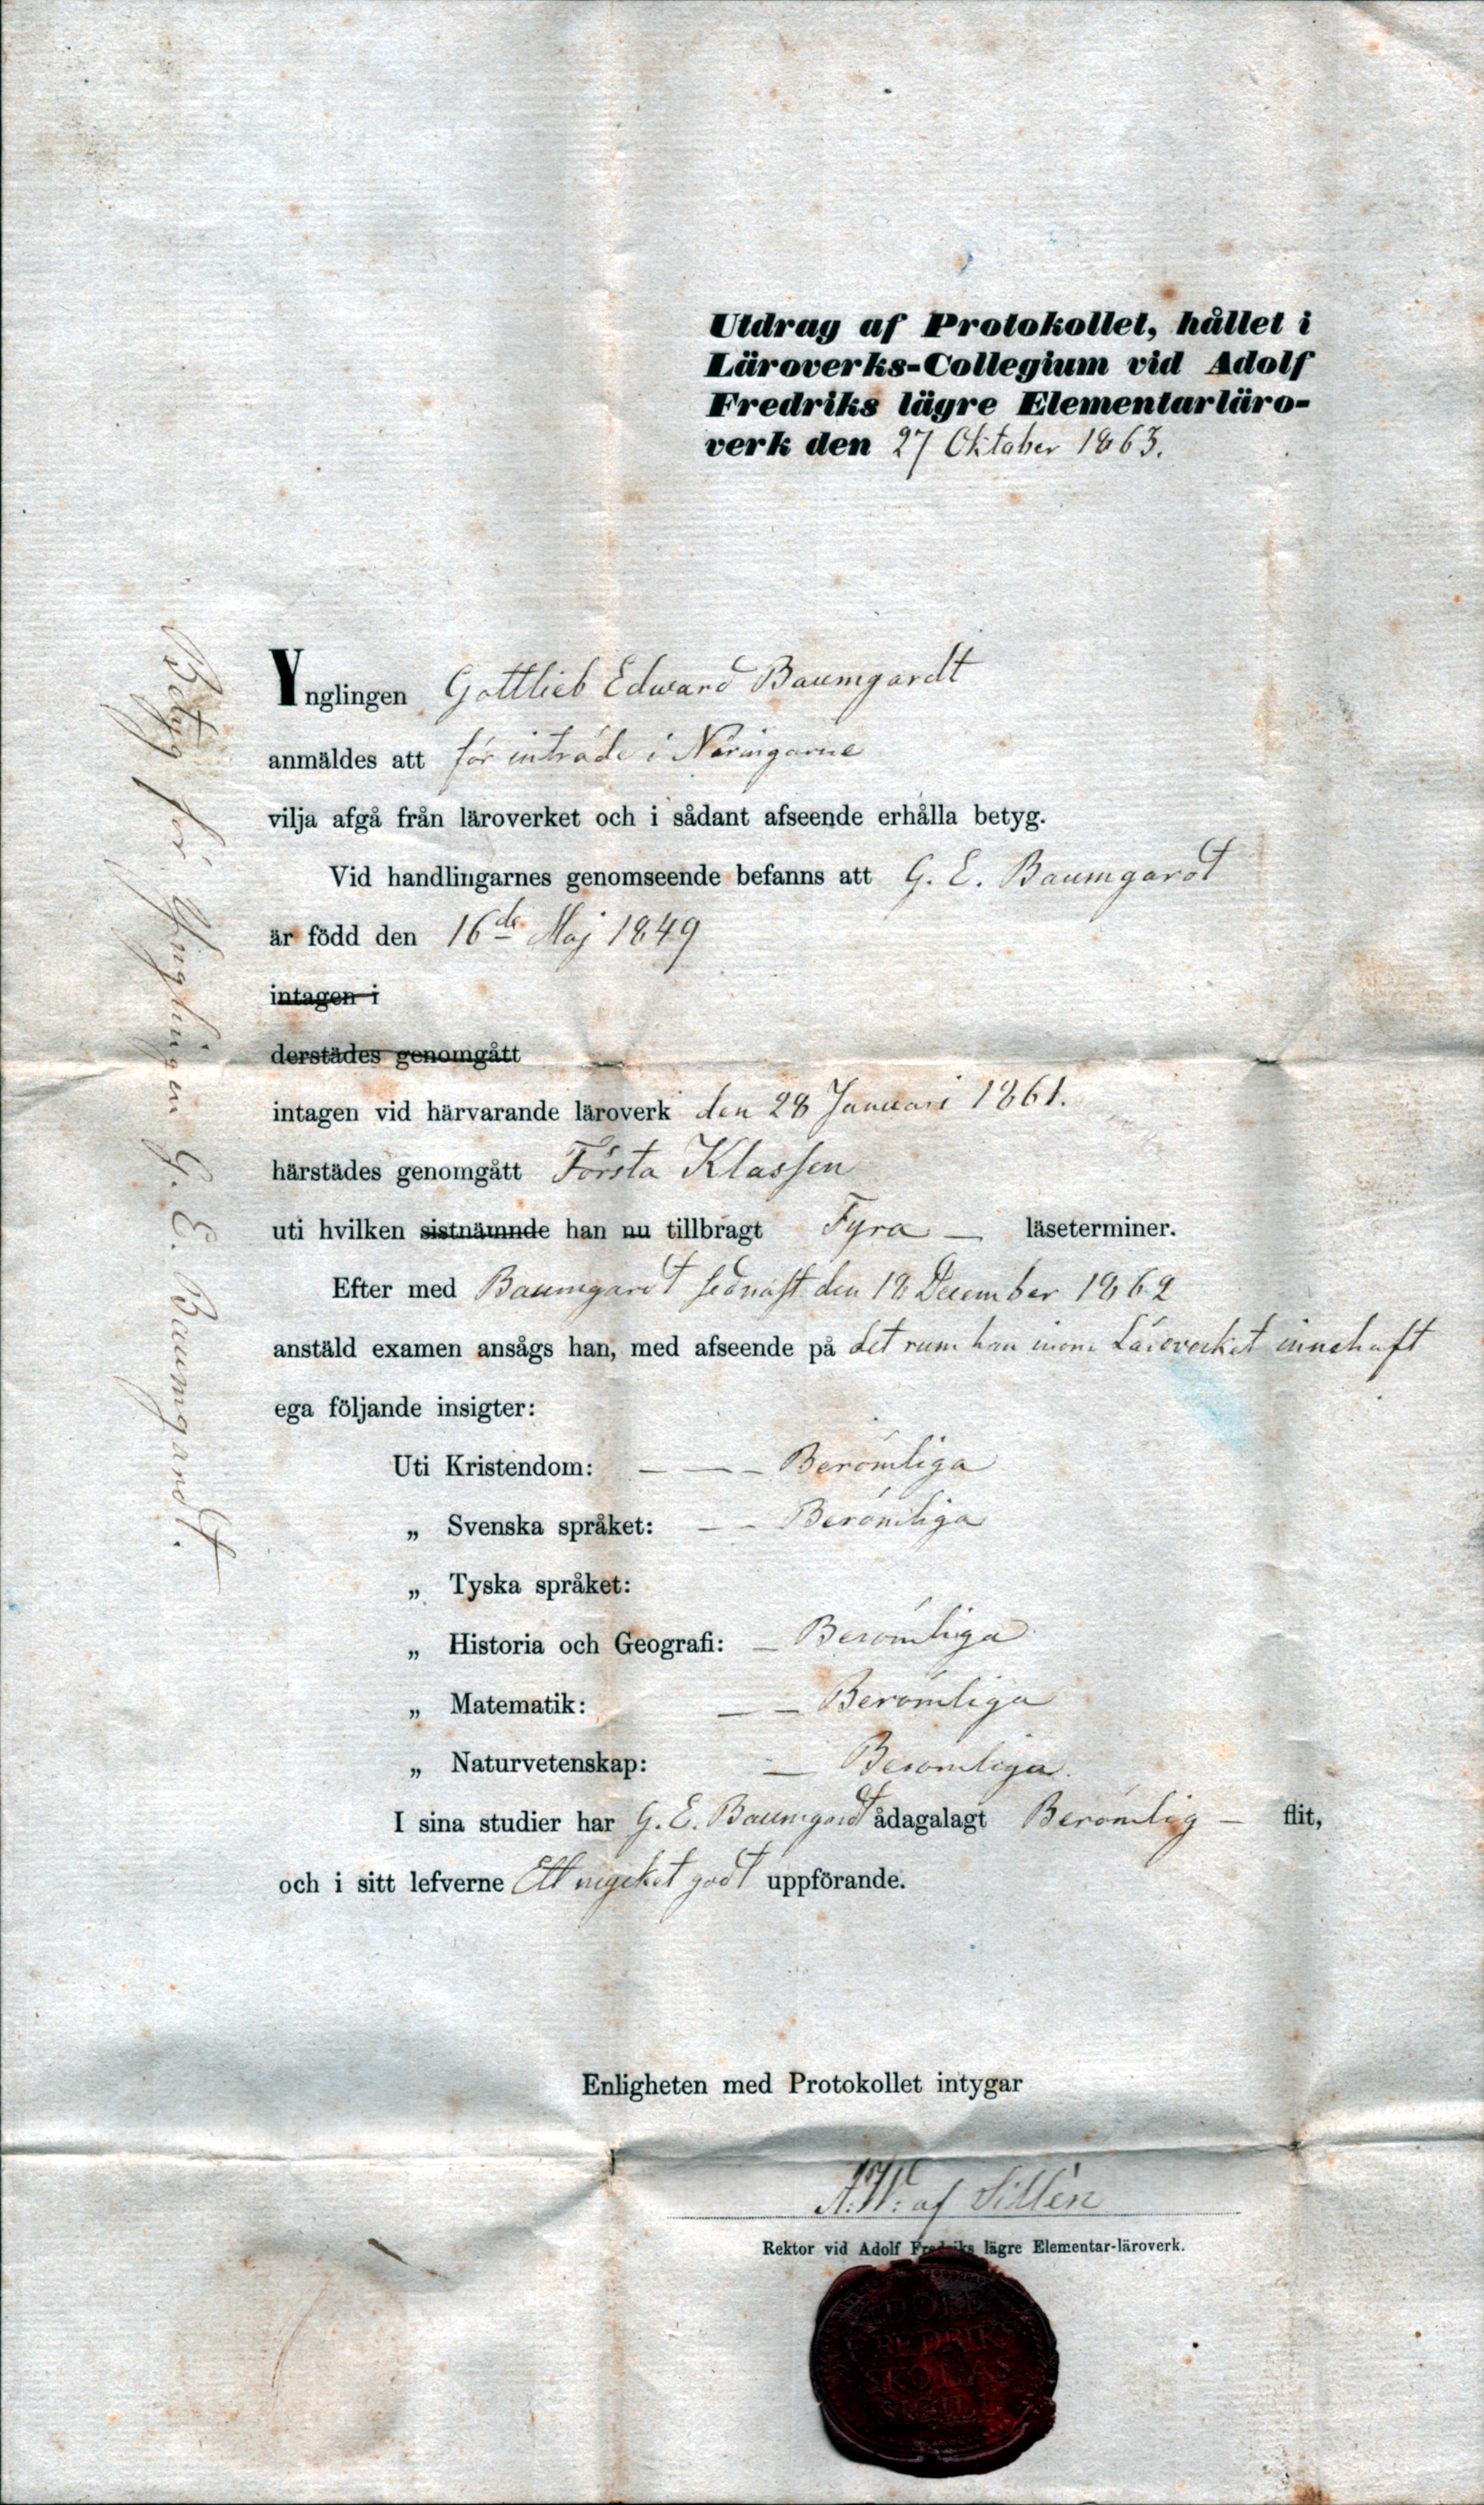 Utdrag af Protokollet, hållet i
Läroverks-Collegium vid Adolf
Fredriks lägre Elementarläro-
verk den 27 Oktober 1863.
Ynglingen Gottlieb Edward Baumgardt
anmäldes att för inträde i Näringarne
vilja afgå från läroverket och i sådant afseende erhålla betyg.
Vid handlingarnes genomseende befanns att G. E. Baumgardt
är född den 16de Maj 1849
intagen i
derstädes genomgått
intagen vid härvarande läroverk den 28 Januari 1861.
härstädes genomgått Första Klassen
uti hvilken sistnämnde han nu tillbragt Fyra — läseterminer.
Efter med Baumgardt sednast den 18 December 1862
anstäld examen ansågs han, med afseende på det rum han inom Läroverket innehaft
ega följande insigter:
Uti Kristendom: — — — Berömliga
„ Svenska språket: — — Berömliga
„ Tyska språket:
„ Historia och Geografi: — Berömliga
„ Matematik: — — Berömliga
„ Naturvetenskap: — Berömliga.
I sina studier har G. E. Baumgardt ådagalagt Berömlig — flit,
och i sitt lefverne Ett mycket godt uppförande.
Enligheten med Protokollet intygar
A. W. af Sillén
Rektor vid Adolf Fredriks lägre Elementar-läroverk.
ADOLF
FREDRIKS
SKOLAS
SIGILL
Betyg för Ynglingen G. E. Baumgardt.